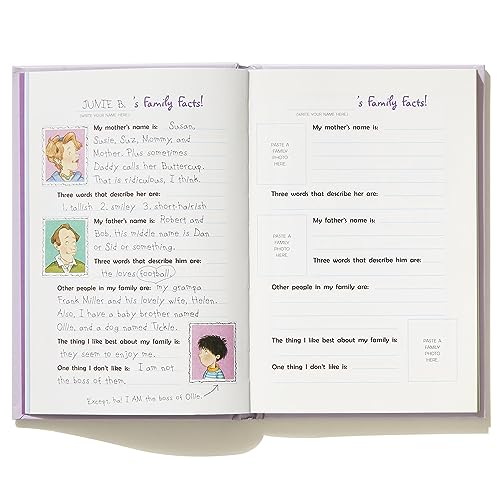 JUNIE B. 's Family Facts!
(WRITE YOUR NAME HERE)
My mother's name is: Susan,
Susie, Suz, Mommy, and
Mother. Plus sometimes
Daddy calls her Buttercup.
That is ridiculous, I think.
Three words that describe her are:
1. tallish 2. smiley 3. short-hairish
My father's name is: Robert and
Bob. His middle name is Dan
or Sid or something.
Three words that describe him are:
He loves football.
Other people in my family are: my grampa
Frank Miller and his lovely wife, Helen.
Also, I have a baby brother named
Ollie, and a dog named Tickle.
The thing I like best about my family is:
they seem to enjoy me.
One thing I don't like is: I am not
the boss of them.
Except, ha! I AM the boss of Ollie.
's Family Facts!
(WRITE YOUR NAME HERE)
My mother's name is:
PASTE A
FAMILY
PHOTO
HERE.
Three words that describe her are:
My father's name is:
PASTE A
FAMILY
PHOTO
HERE.
Three words that describe him are:
Other people in my family are:
The thing I like best about my family is:
PASTE A
FAMILY
PHOTO
HERE.
One thing I don't like is: